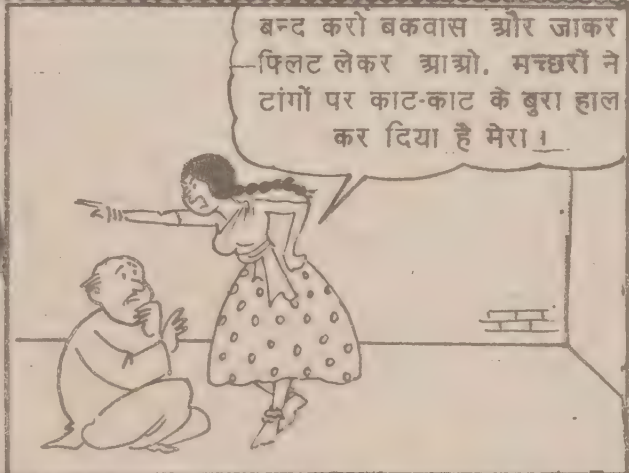 बन्द करो बकवास और जाकर
फ्लिट लेकर आओ. मच्छरों ने
टांगों पर काट-काट के बुरा हाल
कर दिया है मेरा ।